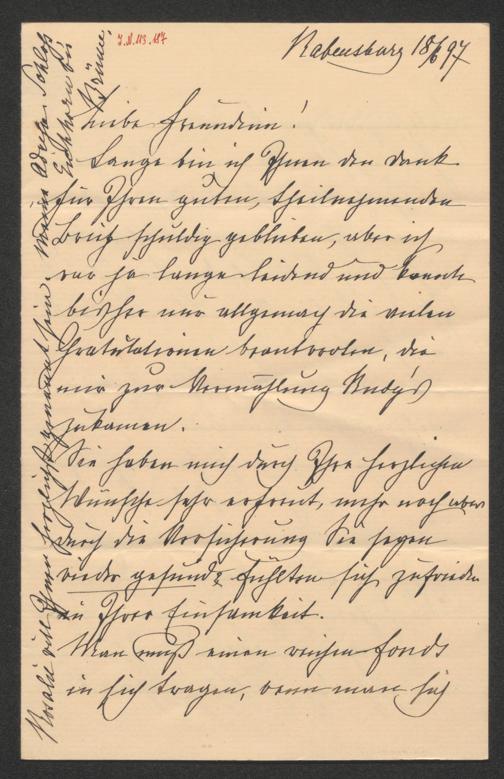 I.N. 113.187
Rabensburg 18/6 97
Liebe Freundinn!
Lange bin ich Ihnen den Dank
für Ihren guten, theilnehmenden
Brief schuldig geblieben, aber ich
war ja lange leidend und konnte
bisher nur allgemach die vielen
Gratulationen beantworten, die
mir zur Vermählung Rudy's
zukamen.
Sie haben mich durch Ihre herzlichen
Wünsche sehr erfreut, mehr noch aber
durch die Versicherung Sie seyen
wieder gesund & fühlten sich zufrieden
in Ihrer Einsamkeit.
Man muß einen reichen Fonds
in sich tragen, wenn man sich
Rosalie will Ihnen herzlichst genannt sein. Meine Adresse Schloß
Eichhorn bei
Brünn.